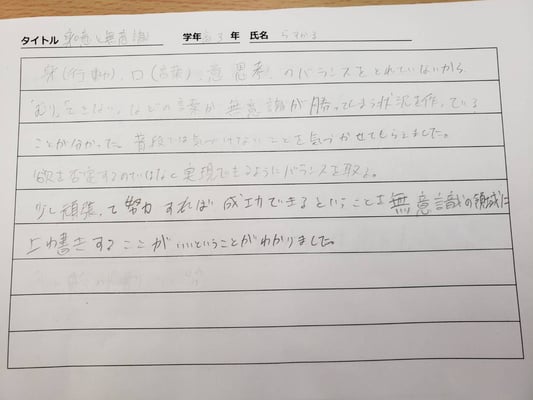 タイトル 熱意と無意識 学年 高3 年 氏名
身(行動)、口(言葉)、意(思考)のバランスをとれていないから
「むり」「できない」などの言葉が無意識が勝ってしまう状況を作っている
ことがわかった。普段では気づけないことを気づかせてもらえました。
欲を否定するのではなく実現できるようにバランスを取る。
少し頑張って努力すれば成功できるということを無意識の領域に
上書きすることがいいということがわかりました。